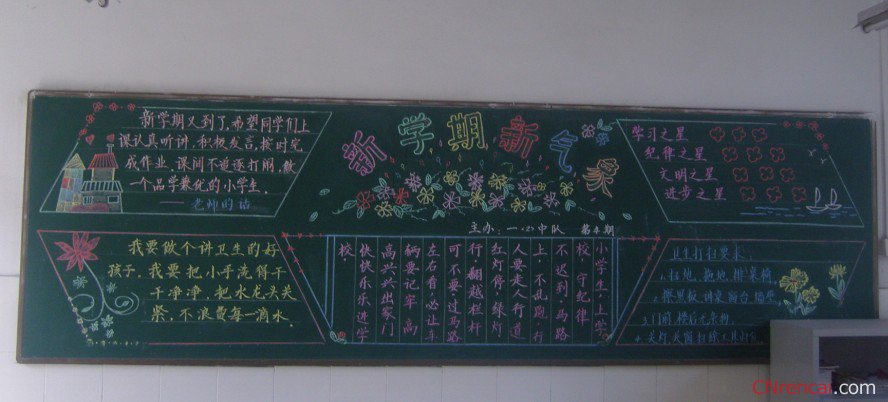 新学期新气象
主办：一〈2〉中队 第4期
新学期又到了，希望同学们上
课认真听讲，积极发言，按时完
成作业，课间不追逐打闹，做
一个品学兼优的小学生。
——老师的话
我要做个讲卫生的好
孩子。我要把小手洗得干
干净净，把水龙头关
紧，不浪费每一滴水。
小学生，上学
校，守纪律
不迟到，马路
上，不乱跑，行
人要走人行道
红灯停，绿灯
行，翻越栏杆
可不要，过马路
左右看，必让车
辆要记牢，高
高兴兴出家门
快快乐乐进学
校。
学习之星
纪律之星
文明之星
进步之星
卫生打扫要求：
1.扫地、拖地、排桌椅
2.擦黑板、讲桌、窗台
3.门前、楼后无杂物。
4.关灯、关窗、扫除工具
CNrencai.com